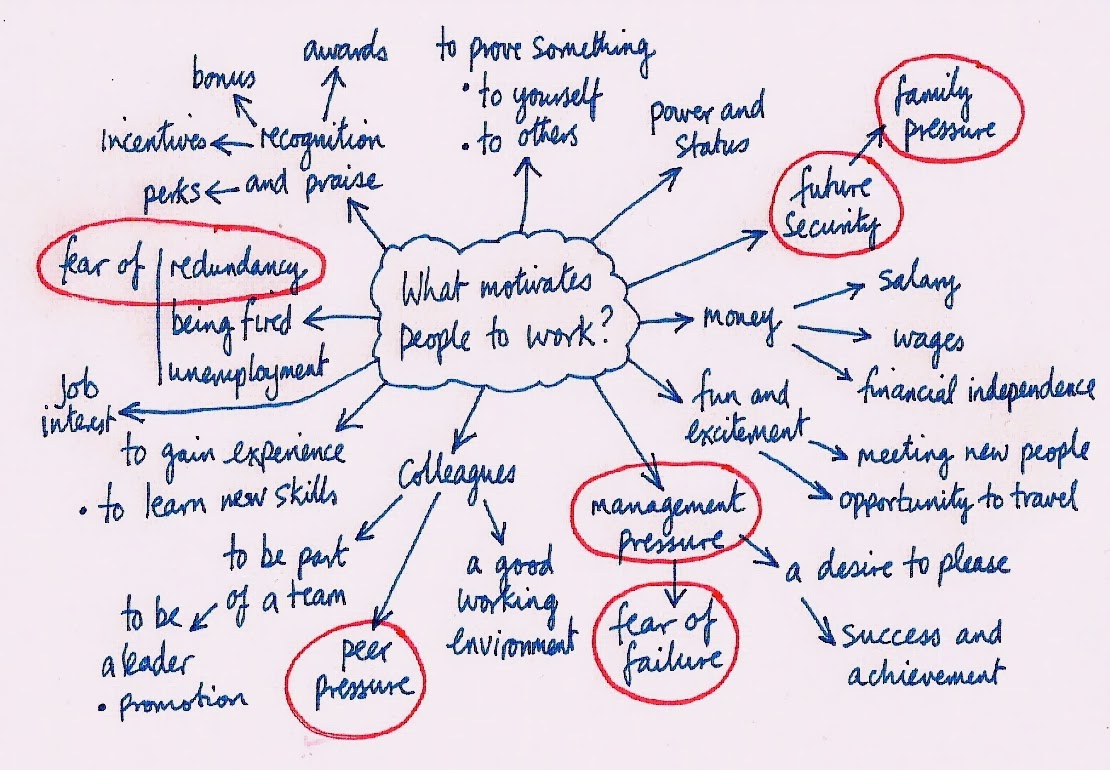 What motivates
people to work?
to prove something
• to yourself
• to others
power and
status
future
security
family
pressure
money
salary
wages
financial independence
fun and
excitement
meeting new people
opportunity to travel
management
pressure
a desire to please
success and
achievement
fear of
failure
Colleagues
a good
working
environment
peer
pressure
to be part
of a team
to be
a leader
• promotion
to gain experience
• to learn new skills
Job
interest
fear of redundancy
being fired
unemployment
recognition
and praise
perks
incentives
bonus
awards